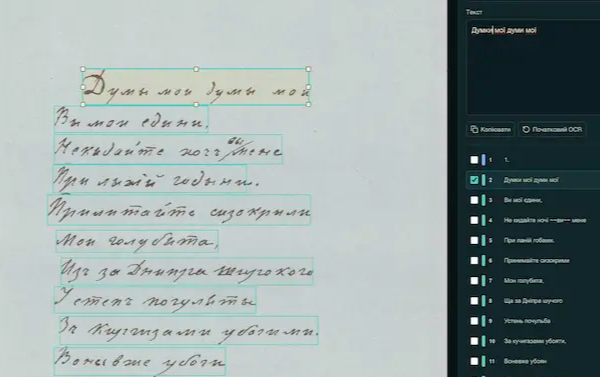 Думы мои думы мои
Вы мои едини,
Некидайте хочъ вы мене
При лыхій годыни.
Прилитайте сизокрыли
Мои голубята,
Изъ за Днипра широкого
У степъ погуляты
Зъ киргизами убогими.
Воны вже убоги
Текст
Думки мої думи мої
Копіювати
Початковий OCR
1 1.
2 Думки мої думи мої
3 Ви мої єдини,
4 Не кидайте ночі —ви— мене
5 При ланій гобами.
6 Принимайте сизокрими
7 Мон голубита,
8 Ща за Дніпра шучого
9 Устень почульба
10 За кучигазами убояти,
11 Воневже убоян